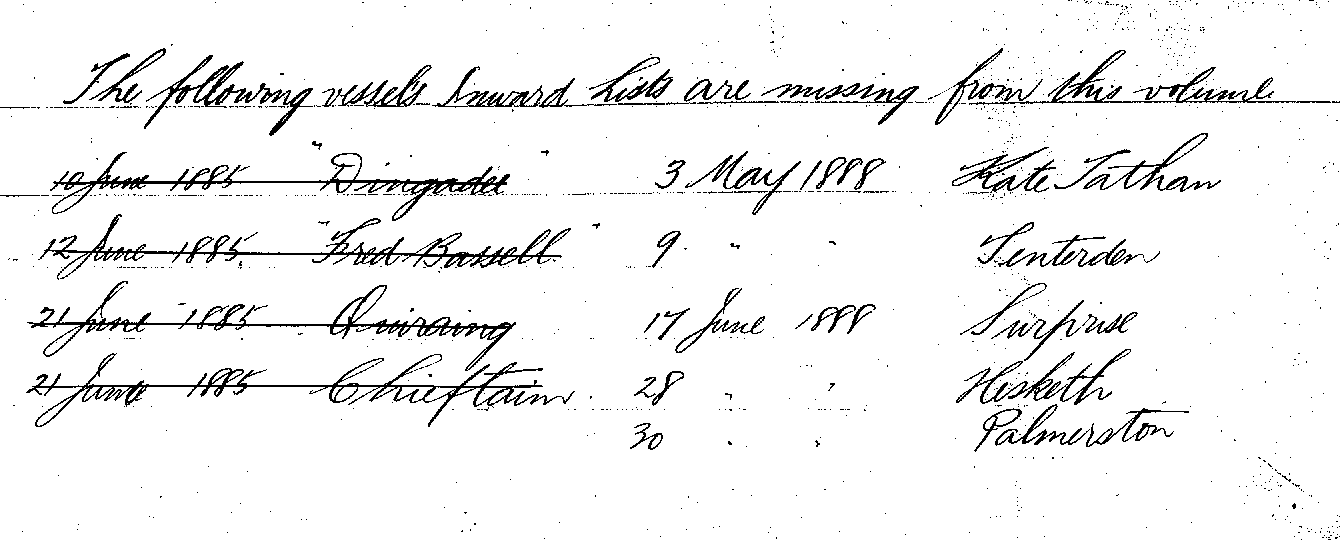 The following vessels Inward Lists are missing from this volume
10 June 1885 "Dingadee" 3 May 1888 Kate Tatham
12 June 1885 "Fred Bassell" 9 " " Tenterden
21 June 1885 Quiraing 17 June 1888 Surprise
21 June 1885 Chieftain 28 " " Hesketh
30 " " Palmerston